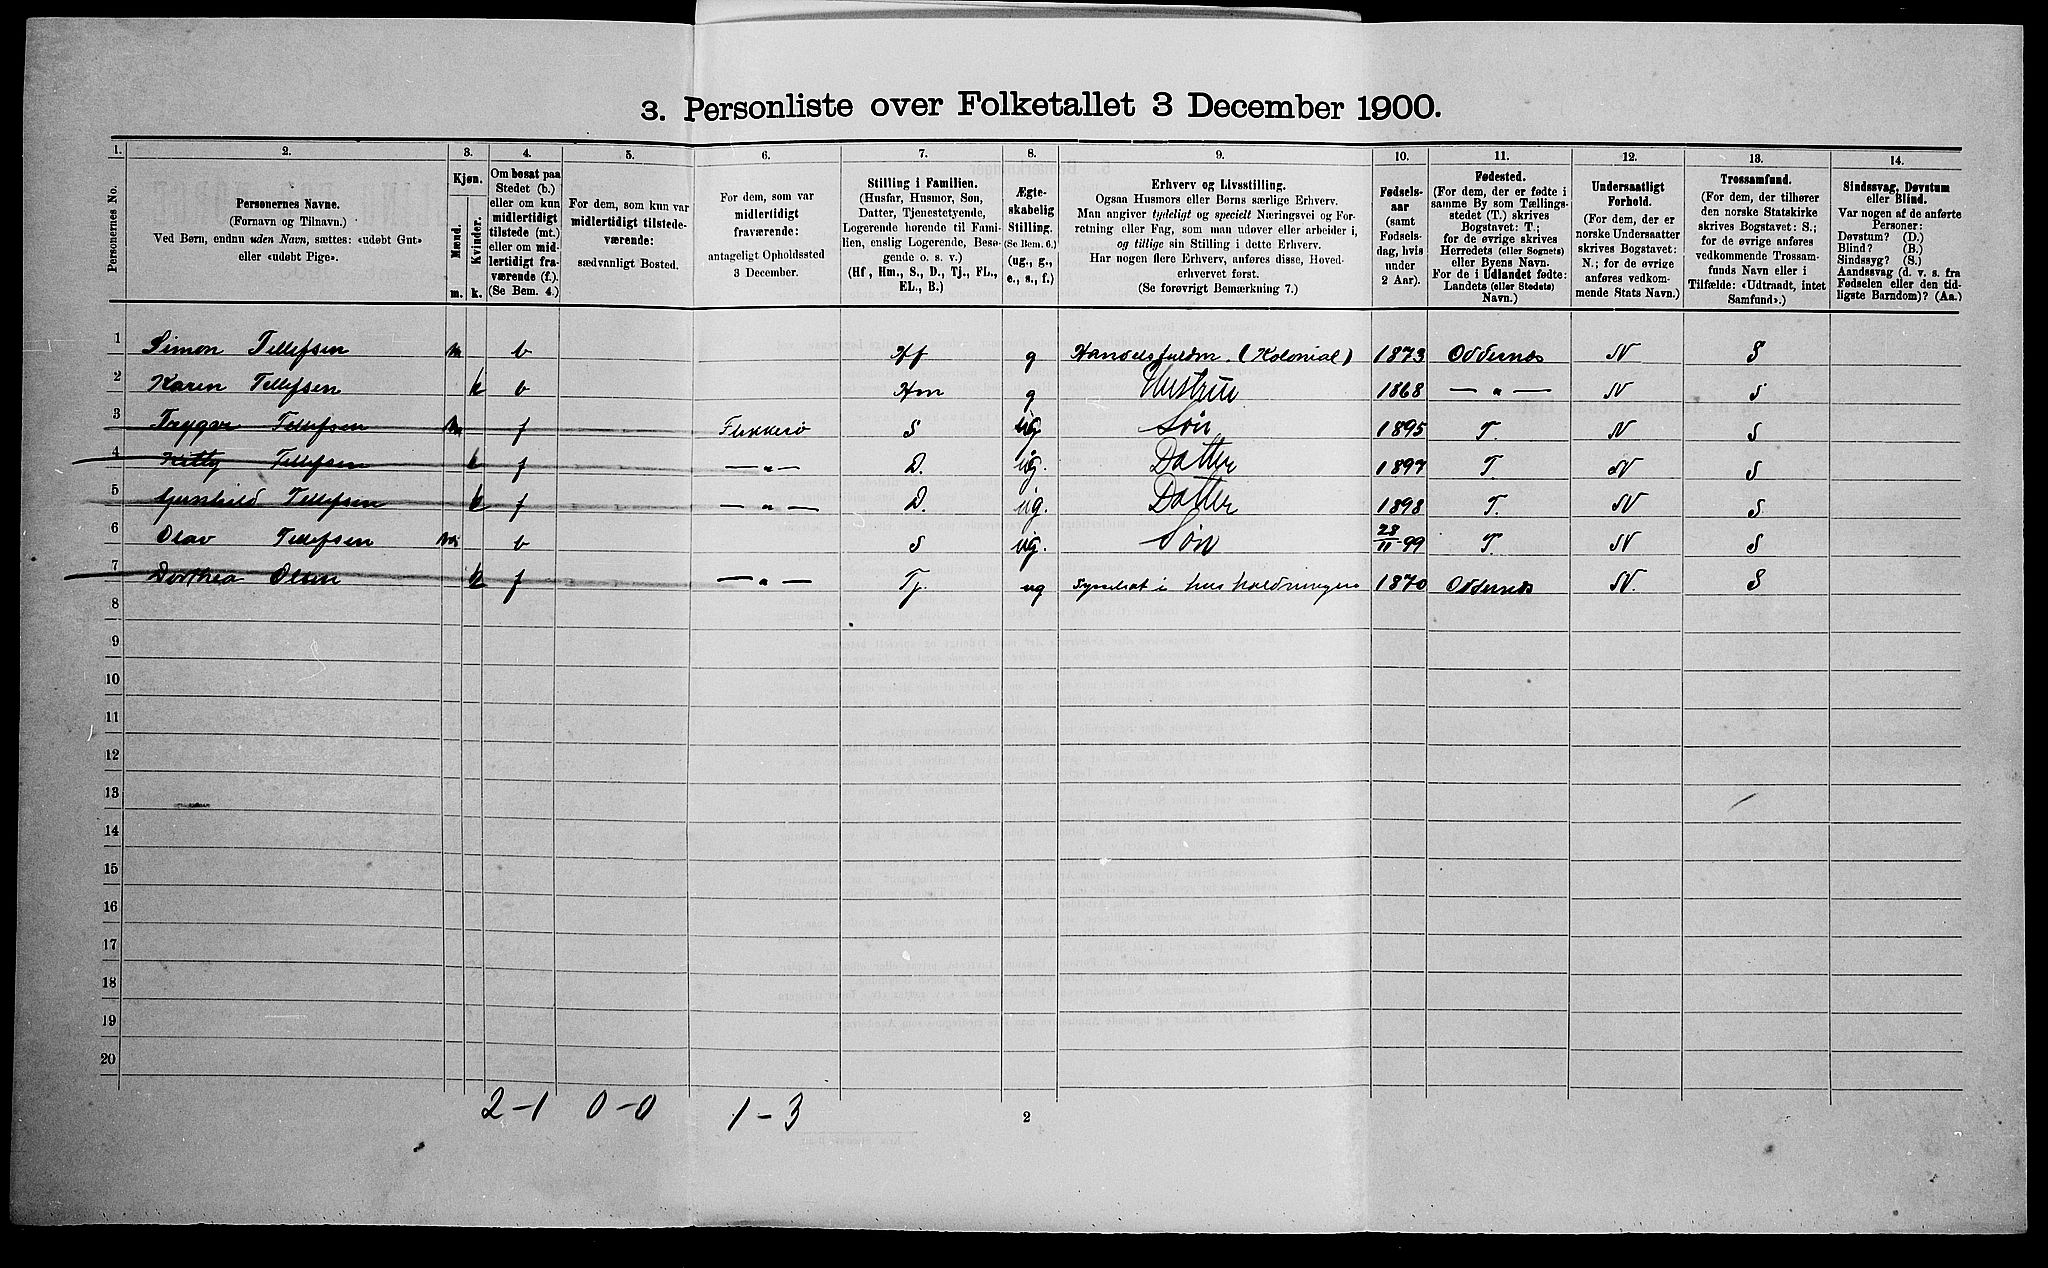 3. Personliste over Folketallet 3 December 1900.
1. 2. 3. 4. 5. 6. 7. 8. 9. 10. 11. 12. 13. 14.
Personernes No.
Personernes Navne.
(Fornavn og Tilnavn.)
Ved Børn, endnu uden Navn, sættes: «udøbt Gut»
eller «udøbt Pige».
Kjøn.
Mænd.
Kvinder.
m. k.
Om bosat paa
Stedet (b.)
eller om kun
midlertidigt
tilstede (mt.)
eller om mid-
lertidigt fra-
værende (f.)
(Se Bem. 4.)
For dem, som kun var
midlertidigt tilstede-
værende:
sædvanligt Bosted.
For dem, som var
midlertidigt
fraværende:
antageligt Opholdssted
3 December.
Stilling i Familien.
(Husfar, Husmor, Søn,
Datter, Tjenestetyende,
Logerende hørende til Fami-
lien, enslig Logerende, Besø-
gende o. s. v.)
(Hf, Hm., S., D., Tj., FL.,
EL., B.)
Ægte-
skabelig
Stilling.
(Se Bem. 6.)
(ug., g.,
e., s., f.)
Erhverv og Livsstilling.
Ogsaa Husmors eller Børns særlige Erhverv.
Man angiver tydeligt og specielt Næringsvei og For-
retning eller Fag, som man udøver eller arbeider i,
og tillige sin Stilling i dette Erhverv.
Har nogen flere Erhverv, anføres disse, Hoved-
erhvervet først.
(Se forøvrigt Bemærkning 7.)
Fødsels-
aar
(samt
Fødsels-
dag, hvis
under
2 Aar).
Fødested.
(For dem, der er fødte i
samme By som Tællings-
stedet (T.) skrives
Bogstavet: T.;
for de øvrige skrives
Herredets (eller Sognets)
eller Byens Navn.
For de i Udlandet fødte:
Landets (eller Stedets)
Navn.)
Undersaatligt
Forhold.
(For dem, der er
norske Undersaatter
skrives Bogstavet:
N.; for de øvrige
anføres vedkom-
mende Stats Navn.)
Trossamfund.
(For dem, der tilhører
den norske Statskirke
skrives Bogstavet: S.;
for de øvrige anføres
vedkommende Trossam-
funds Navn eller i
Tilfælde: «Udtraadt, intet
Samfund».)
Sindssvag, Døvstum
eller Blind.
Var nogen af de anførte
Personer:
Døvstum? (D.)
Blind? (B.)
Sindssyg? (S.)
Aandssvag (d. v. s. fra
Fødselen eller den tid-
ligste Barndom)? (Aa.)
1 Simon Tellefsen m b Hf g Handelsfuldm. (Kolonial) 1873 Oddernes N S
2 Karen Tellefsen k b Hm g Hustru 1868 — „ — N S
3 Trygve Tellefsen m f Flekkerø S ug Søn 1895 T. N S
4 Kitty Tellefsen k f — „ — D. ug. Datter 1897 T. N S
5 Gunhild Tellefsen k f — „ — D. ug. Datter 1898 T. N S
6 Olav Tellefsen m b S ug. Søn 28/11 99 T. N S
7 Dorthea Olsen k f — „ — Tj. ug Sysselsat i husholdningen 1870 Oddernes N. S
8
9
10
11
12
13
14
15
16
17
18
19
20
2-1 0-0 1-3 2